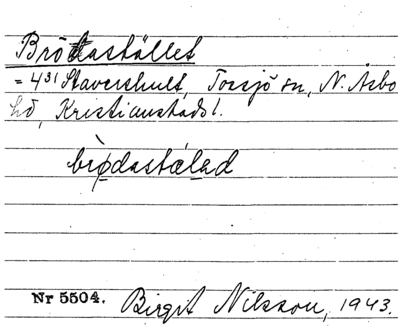 Bröttastället
= 4³¹ Stavershult, Torsjö sn, N. Åsbo
hd, Kristianstads l.
brø̀dastælad
Nr 5504. Birgit Nilsson, 1943.